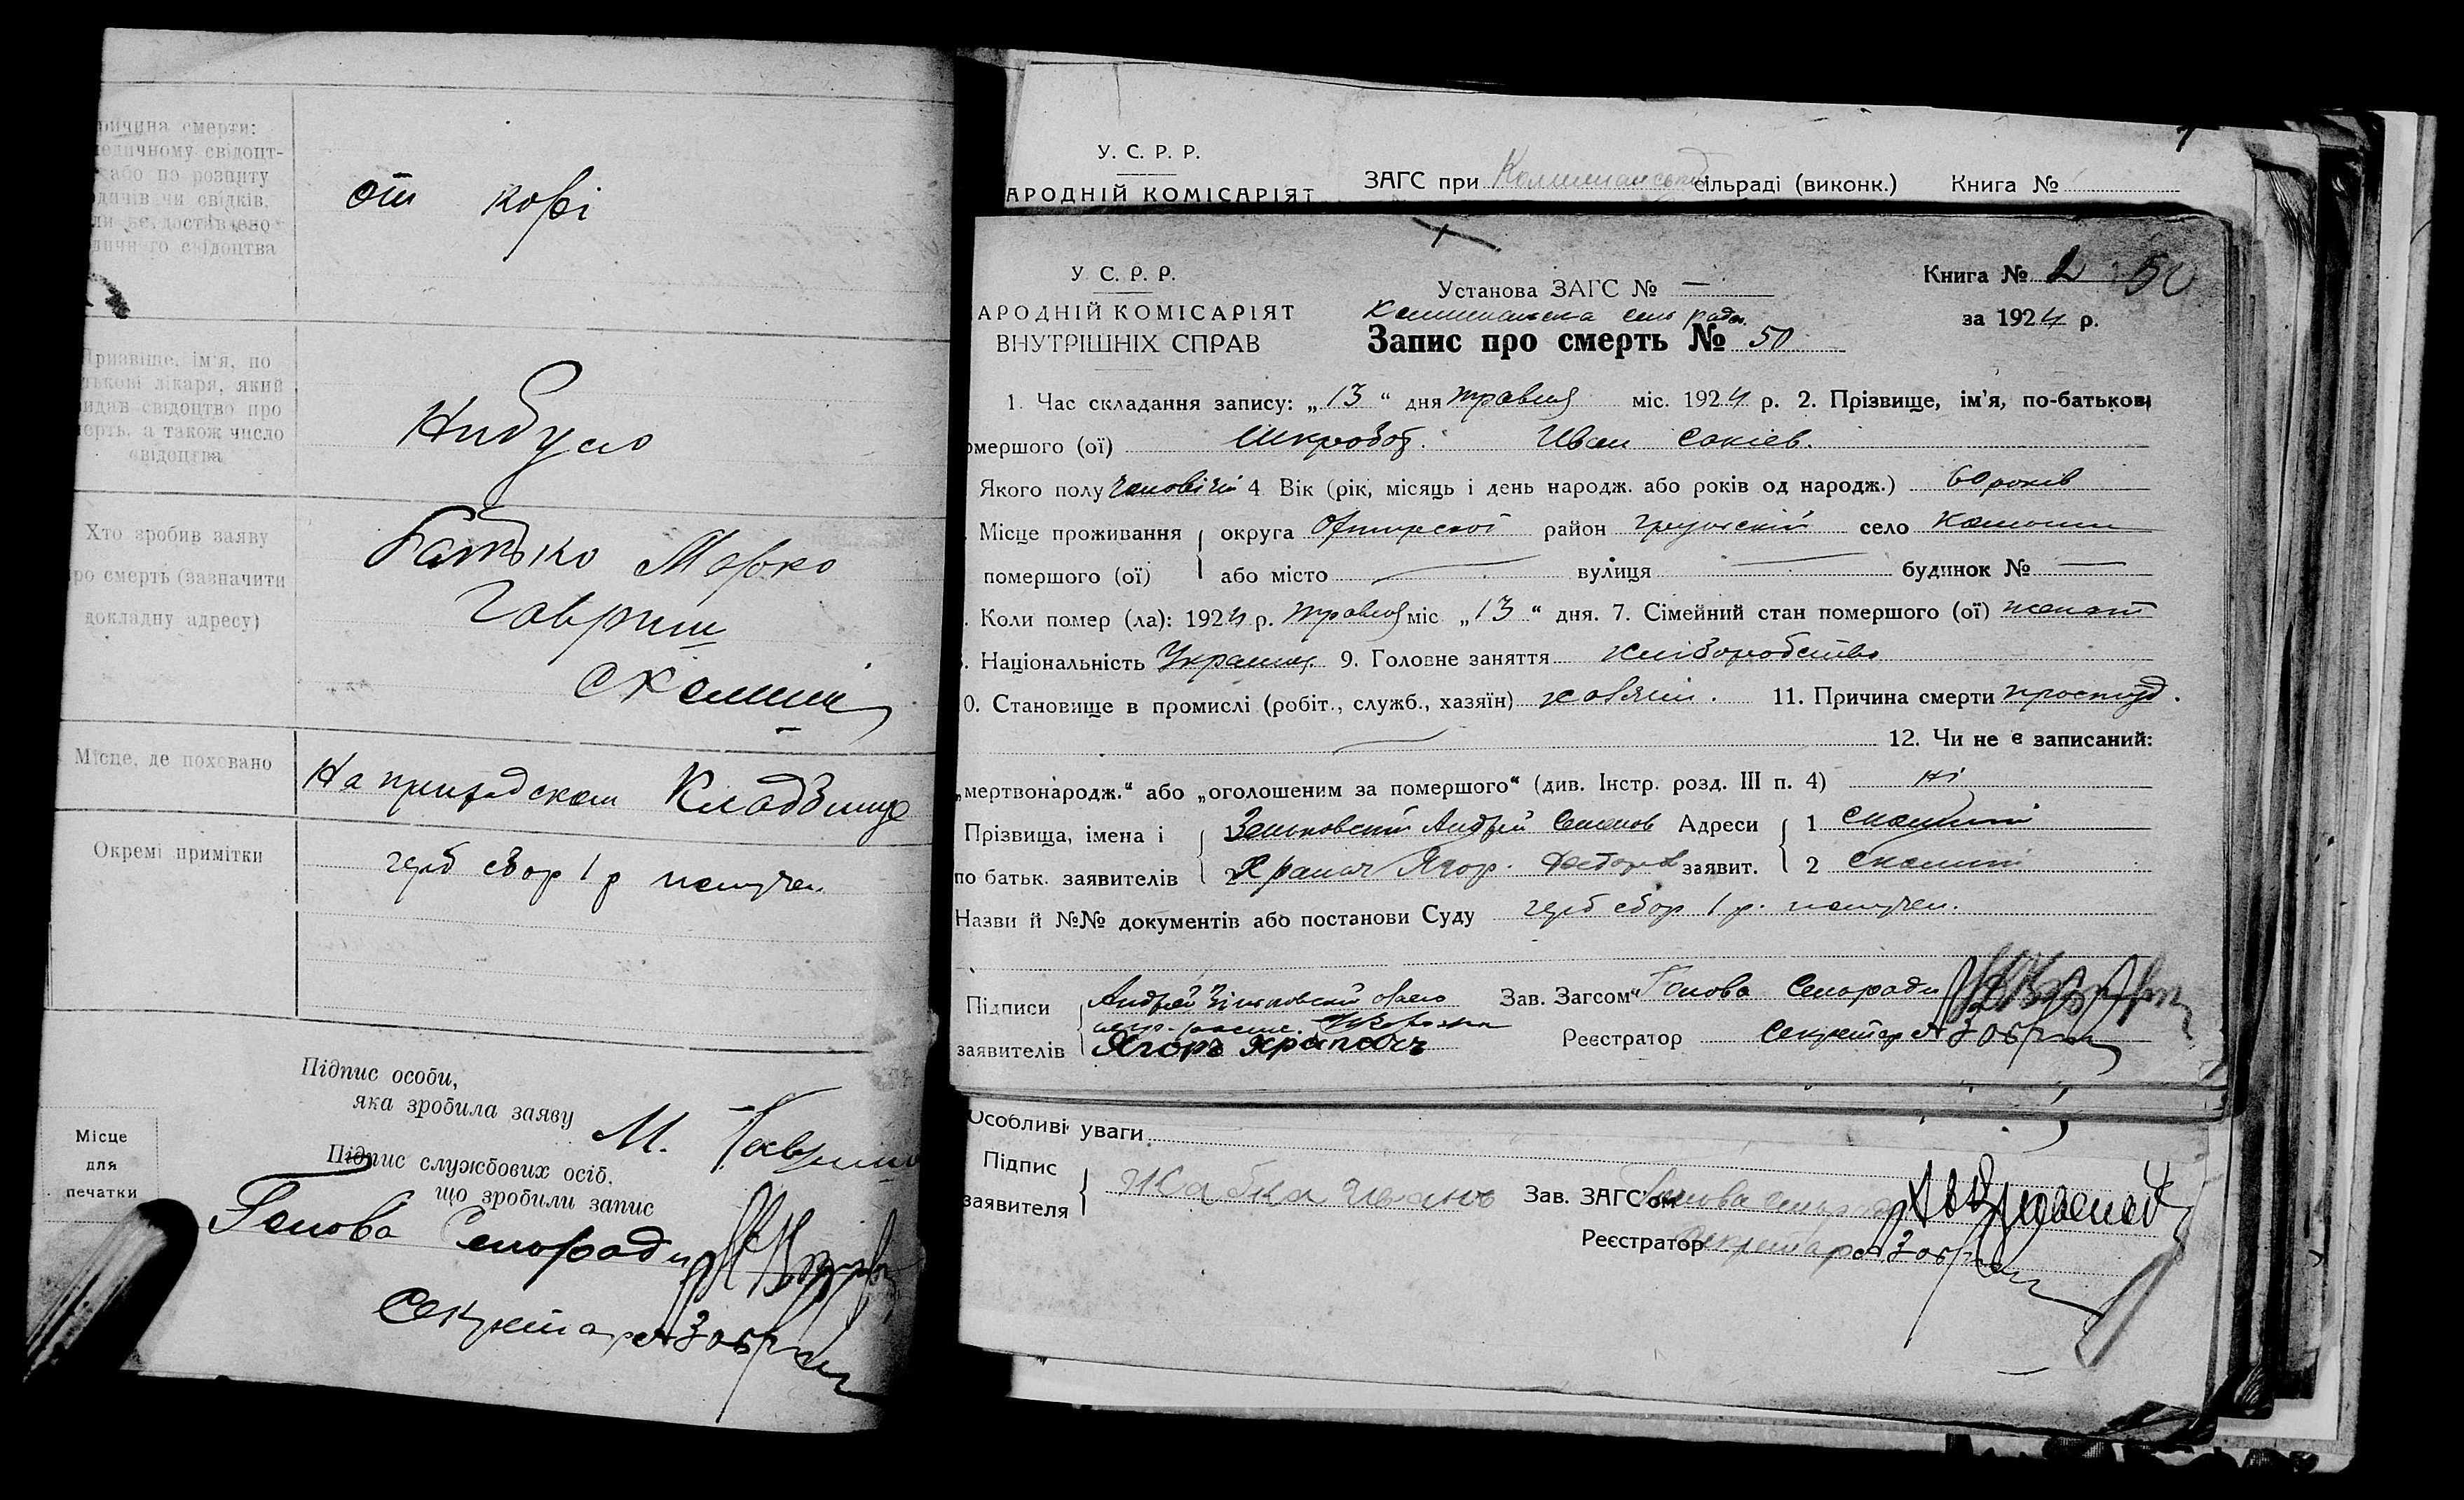 ричина смерти:
едичному свідоцт-
або по розпиту
дичів чи свідків,
ли не доставлено
дичного свідоцтва
от корі
Призвіще, ім'я, по
тькові лікаря, який
видав свідоцтво про
мерть, а також число
свідоцтва
Нибуло
Хто зробив заяву
про смерть (зазначити
докладну адресу)
Батько Марко
Гавриш
с Комиши
Місце, де поховано
На приходском Кладвище
Окремі примітки
герб сбор 1 р получен
Підпис особи,
яка зробила заяву М. Гавриш
Місце
для
печатки
Підпис службових осіб,
що зробили запис
Голова Сельради
Секретар
У. С. Р. Р.
АРОДНІЙ КОМІСАРІЯТ
ЗАГС при сільраді (виконк.) Книга №
У С. Р. Р.
АРОДНІЙ КОМІСАРІЯТ
ВНУТРІШНІХ СПРАВ
Установа ЗАГС № —
сель рада
Запис про смерть № 50
Книга № 2 50
за 1924 р.
1. Час складання запису: „ 13 " дня травня міс. 1924 р. 2. Прізвище, ім'я, по-батькові
омершого (ої) Шкробот. Иван Сакіев.
Якого полу чоловічій 4 Вік (рік, місяць і день народж. або років од народж.) 60 років
Місце проживання округа район село Комиши
помершого (ої) або місто — вулиця — будинок № —
Коли помер (ла): 1924 р. травня міс „ 13 " дня. 7. Сімейний стан помершого (ої) женат
Національність Украинц. 9. Головне заняття хліборобство
0. Становище в промислі (робіт., служб., хазяїн) хазяін. 11. Причина смерти простуд.
— 12. Чи не є записаний:
„мертвонародж." або „оголошеним за помершого" (див. Інстр. розд. III п. 4) ні
Прізвища, імена і 1 Зеньковский Андрей Семенов Адреси 1 с Комиши
по батьк. заявителів 2 Храпач Ягор. Федоров заявит. 2 с Комиши
Назви й №№ документів або постанови Суду герб сбор 1 р. получен.
Підписи Андрей Зіньковский Зав. Загсом Голова Сельради
заявителів Ягоръ Храпачъ Реєстратор Секретар
Особливі уваги
Підпис
заявителя Жабка Иванъ Зав. ЗАГСом Голова
Реєстратор Секретар